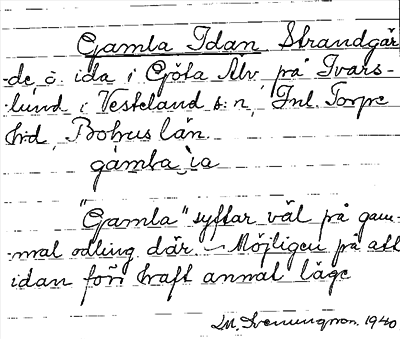 Gamla Idan. Strandgär
de, ö. ida i Göta Älv på Ivars-
lund i Västerland s:n, Inl. Torpe
h:d, Bohus län.
gàmba ìa
"Gamla" syftar väl på gam-
mal odling där. Möjligen på att
idan förr haft annat läge
M. Svenungsson. 1940